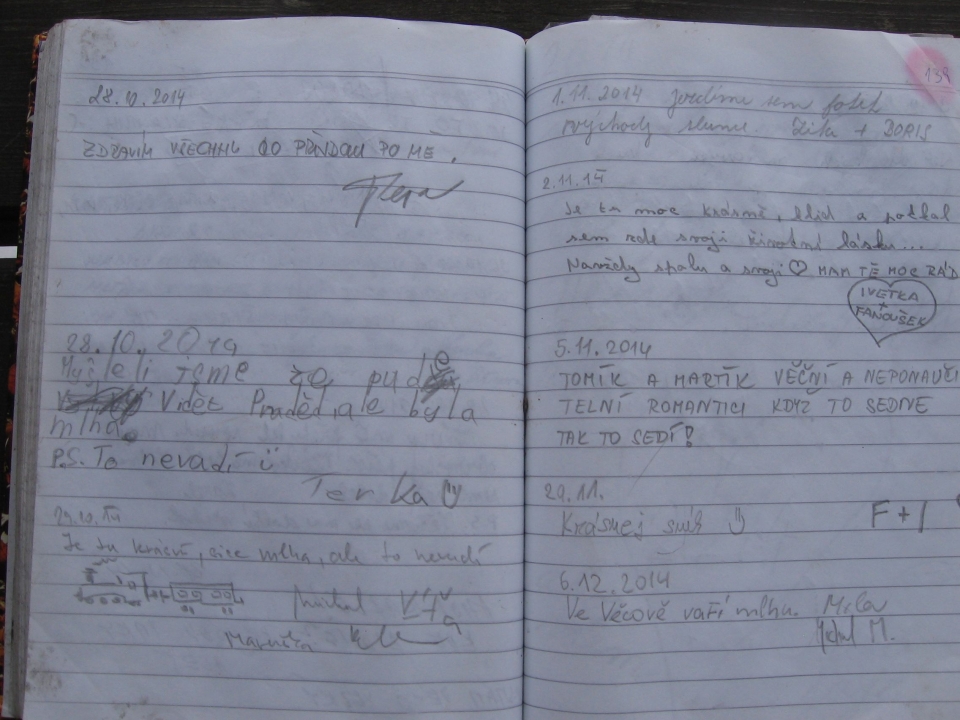 28.10.2014
ZDRAVÍM VŠECHNY CO PŘIJDOU PO MĚ.
28.10.2014
Mysleli jsme že pude
Vidět Praděd, ale byla
mlha.
P.S. To nevadí
Terka
29.10.14
Je tu krásně, sice mlha, ale to nevadí
Michal
Maruška
139
1.11.2014 sem fotit
východy slunce. Zita + BORIS
2.11.14
Je tu moc krásně, klid a potkal
sem zde svoji životní lásku...
Navždy spolu a svoji ♡ MAM TĚ MOC RÁD
IVETKA
+
FANOUŠEK
5.11.2014
TOMÍK A MARTÍK VĚČNÍ A NEPONAUČI
TELNÍ ROMANTICI KDYŽ TO SEDNE
TAK TO SEDÍ!
29.11.
Krásnej sníh F + I
6.12.2014
Ve Věcově vaří mlhu.
M.